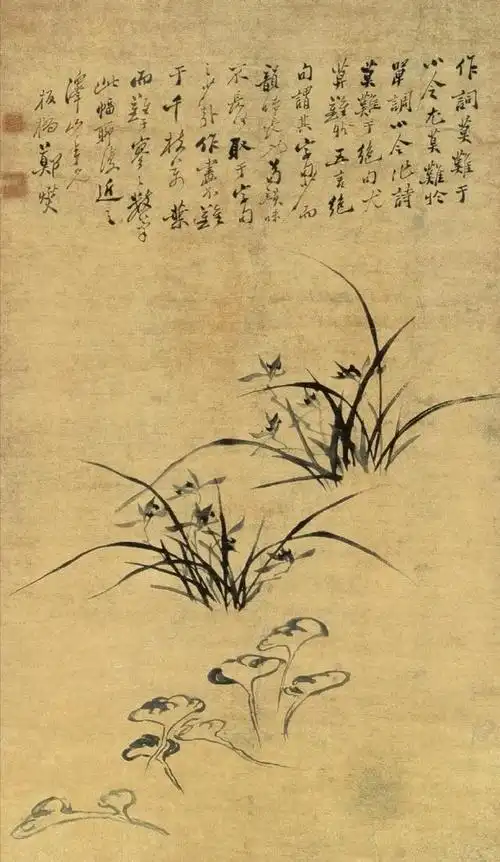 作詞莫難于
小令尤莫難於
單調小令作詩
莫難于絕句尤
莫難於五言絕
句謂其字少而
韻味
不長 取于字句
之少 作畫不難
于千枝萬葉
而難于寥寥數筆
此幅聊復近之
板橋鄭燮